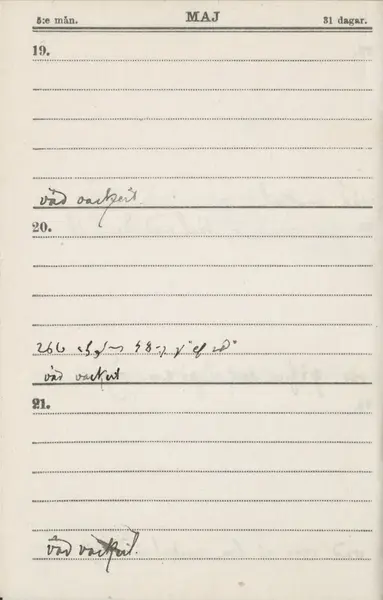 5:e mån. MAJ 31 dagar.
19.
väd vackert.
20.
väd vackert
21.
väd vackert.